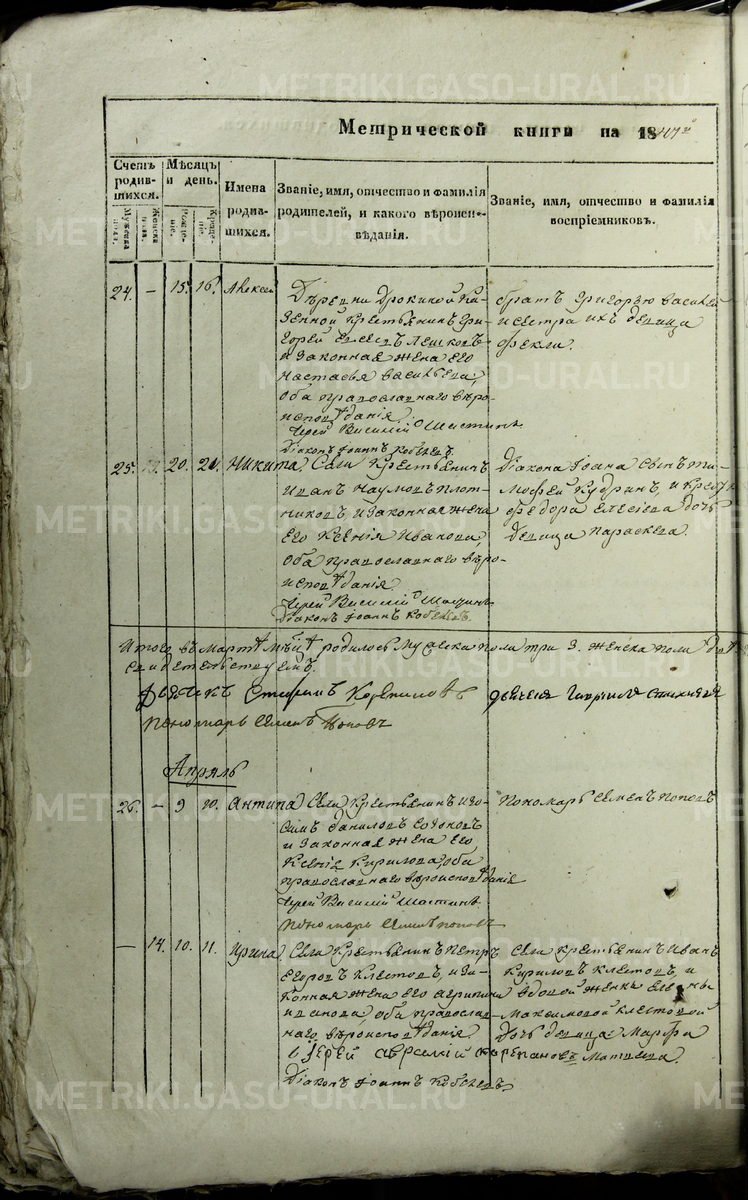 METRIKI.GASO-URAL.RU
Метрической книги на 1847й
Счетъ родившихся.
Мужеска пола.
Женска пола.
Мѣсяцъ и день.
Рожденіе.
Крещеніе.
Имена родившихся.
Званіе, имя, отчество и фамилія родителей, и какого вѣроисповѣданія.
Званіе, имя, отчество и фамилія воспріемниковъ.
24. — 15. 16. Алексей
Дѣревни Дрокиной Ка-
зенной крестьянинъ Гри-
горей
и законная жена его
Настасья Васильева,
оба православнаго вѣро-
исповѣданія
Іерей Василий
Діаконъ Іоаннъ
братъ Григорью Василей
и сестра ихъ девица
Фекла.
25. 20. 21. Никита.
Села Крестьянинъ
Иванъ Наумовъ Плот-
никовъ, и законная жена
его Ксенія Иванова,
оба православнаго вѣро-
исповѣданія
Іерей Василий
Діаконъ Іоаннъ
Діакона Іоана сынъ Ти-
мофей Кудринъ, и крест
Федора Елесіева дочь
Девица Параскева.
Итого въ мартѣ мцѣ родилось мужеска пола три 3. женска пола
свидетельствуемъ.
Дьячекъ Стефанъ
Пономарь Семенъ Поповъ
Апрѣль
26. — 9 10. Антипа
Села Крестьянинъ Изо-
симъ Даниловъ
и законная жена его
Ксенія Кирилова, оба
православнаго вѣроисповѣданія
Іерей Василий
Пономарь Семенъ Поповъ
Пономарь Семенъ Поповъ
— 14. 10. 11. Ирина.
Села Крестьянинъ Петръ
Егоровъ Клестовъ, и за-
конная жена его Агрипина
Иванова оба православ-
наго вѣроисповѣданія
Іерей
Діаконъ Іоаннъ
Села крестьянинъ Иванъ
Кириловъ Клестовъ, и
вдовой женки Евгены
Максимовой Клестовой
дочь девица Марфа
Матвеева.